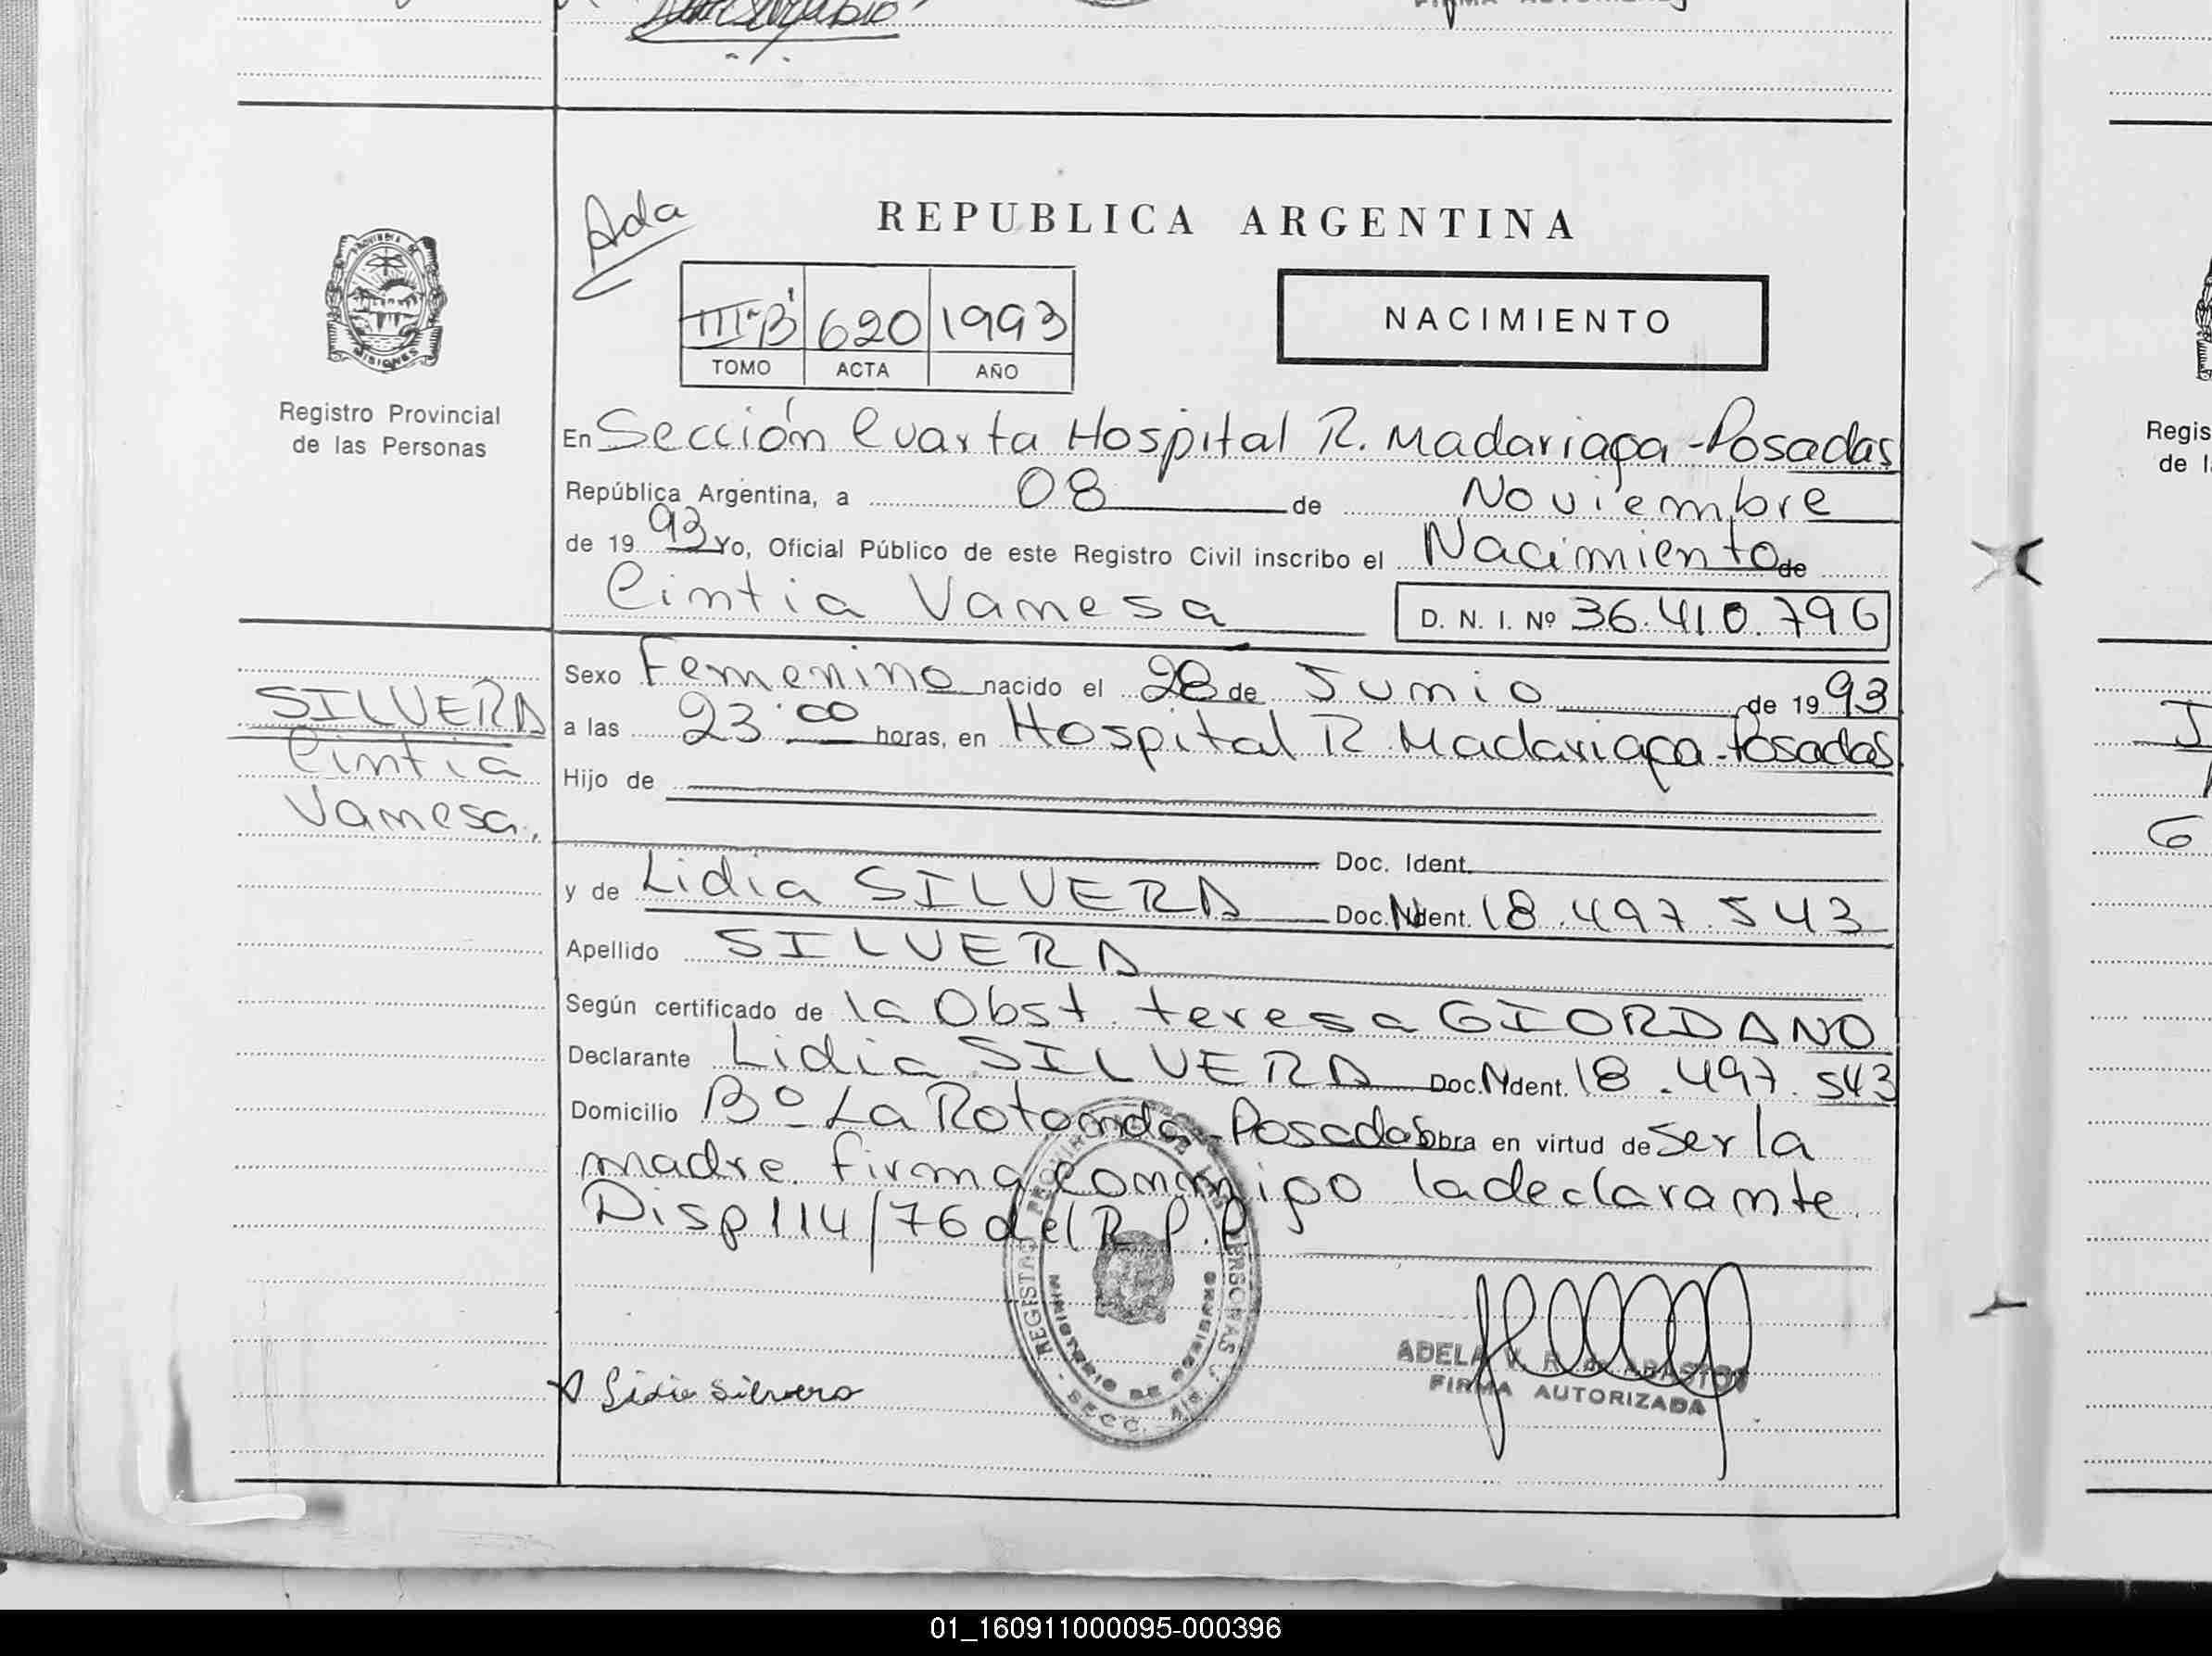 FIRMA AUTORIZADA
Ada
REPUBLICA ARGENTINA
PROVINCIA DE
MISIONES
III-B' 620 1993
TOMO ACTA AÑO
NACIMIENTO
Registro Provincial
de las Personas
En Sección Cuarta Hospital R. Madariaga - Posadas
República Argentina, a 08 de Noviembre
de 19 93 Yo, Oficial Público de este Registro Civil inscribo el Nacimiento de
Cintia Vanesa D. N. I. Nº 36.410.796
Sexo Femenino nacido el 28 de Junio de 19 93
SILVERA
Cintia
Vanesa.
a las 23:00 horas, en Hospital R. Madariaga - Posadas
Hijo de
Doc. Ident.
y de Lidia SILVERA Doc. Ident. 18.497.543
Apellido SILVERA
Según certificado de la Obst. teresa GIORDANO
Declarante Lidia SILVERA Doc. Ident. 18.497.543
Domicilio Bº La Rotonda - Posadas obra en virtud de ser la
madre. firma conmigo la declarante.
Disp 114/76 del R.P.P
MINISTERIO DE GOBIERNO
Lidia Silvero
ADELA V. R. de
FIRMA AUTORIZADA
Regis
de l
01_160911000095-000396